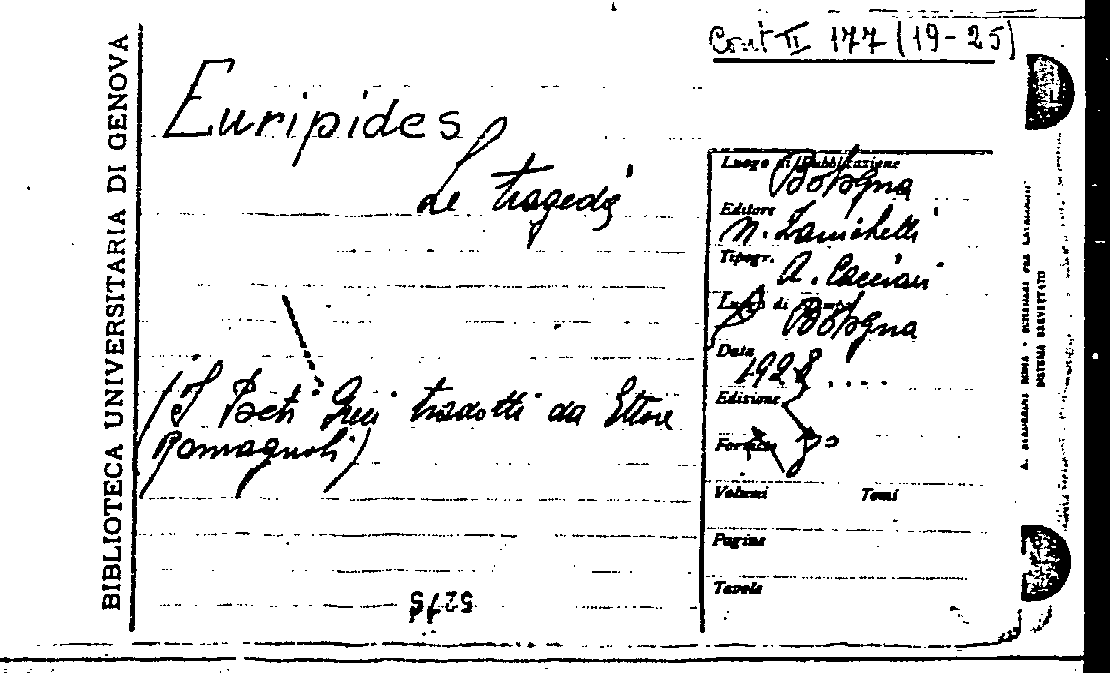 Cont II 177 (19-25)
BIBLIOTECA UNIVERSITARIA DI GENOVA
Euripides
Le tragedie
(I Poeti Greci tradotti da Ettore
Romagnoli)
5275
Luogo di Pubblicazione
Bologna
Editore
N. Zanichelli
Tipogr.
A. Cacciari
Luogo di
Bologna
Data
1928 ....
Edizione
Formato
8°
Volumi Tomi
Pagine
Tavole
SISTEMA BREVETTATO